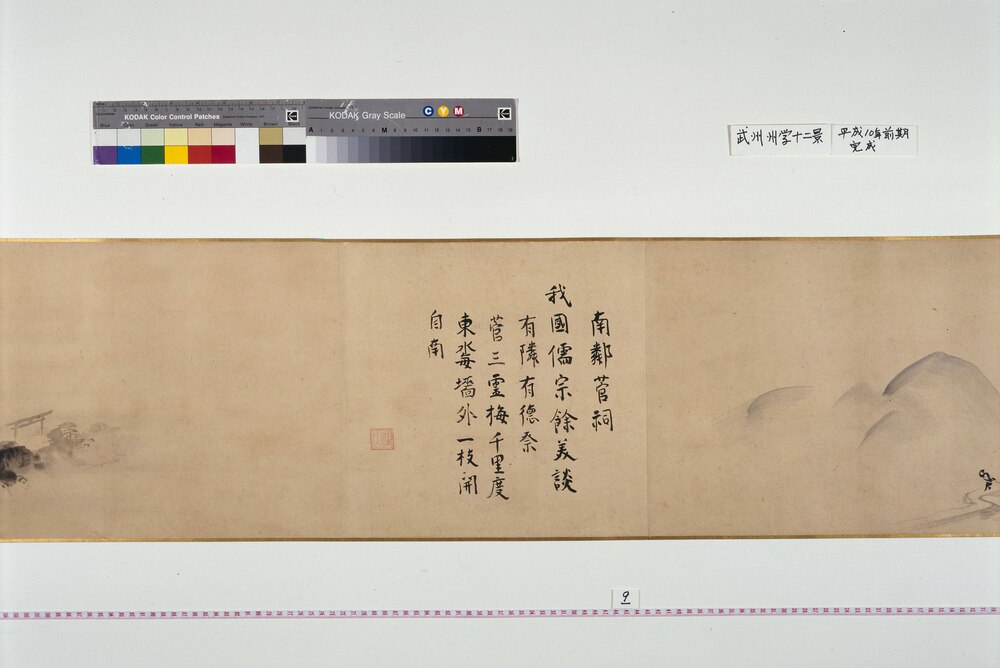 KODAK Color Control Patches
Blue Cyan Green Yellow Red Magenta White Brown Black
KODAK Gray Scale
C Y M
A 1 2 3 4 5 6 M 8 9 10 11 12 13 14 15 B 17 18 19
武州州学十二景
平成10年前期
完成
南鄰菅祠
我國儒宗餘美談
有隣有德祭
菅三霊梅千里度
東海墻外一枝開
自南
9